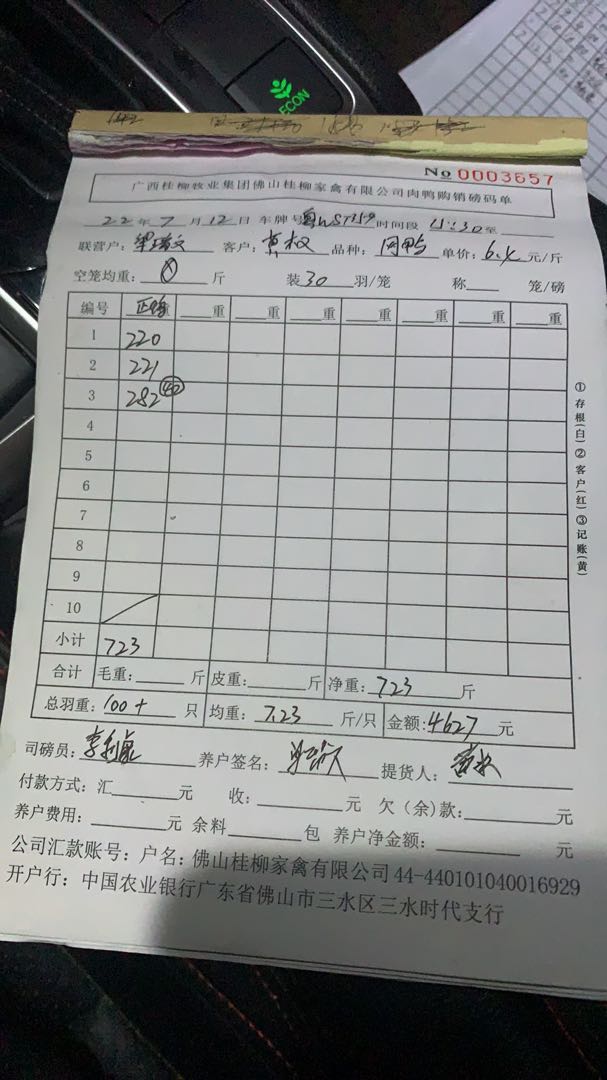 ECON
No 0003657
广西桂柳牧业集团佛山桂柳家禽有限公司肉鸭购销磅码单
22年7月12日 车牌号 时间段 11:30至
联营户: 客户:黄权 品种: 单价:6.4元/斤
空笼均重: 斤 装30羽/笼 称 笼/磅
编号 重 重 重 重 重 重 重 重
1 220
2 221
3 282 40
4
5
6
7
8
9
10
小计 723
合计 毛重: 斤 皮重: 斤 净重:723斤
总羽重:100 只 均重:7.23斤/只 金额:4627元
司磅员: 养户签名: 提货人:
付款方式:汇 元 收: 元 欠(余)款: 元
养户费用: 元 余料 包 养户净金额: 元
公司汇款账号:户名:佛山桂柳家禽有限公司44-440101040016929
开户行:中国农业银行广东省佛山市三水区三水时代支行
①存根(白)②客户(红)③记账(黄)